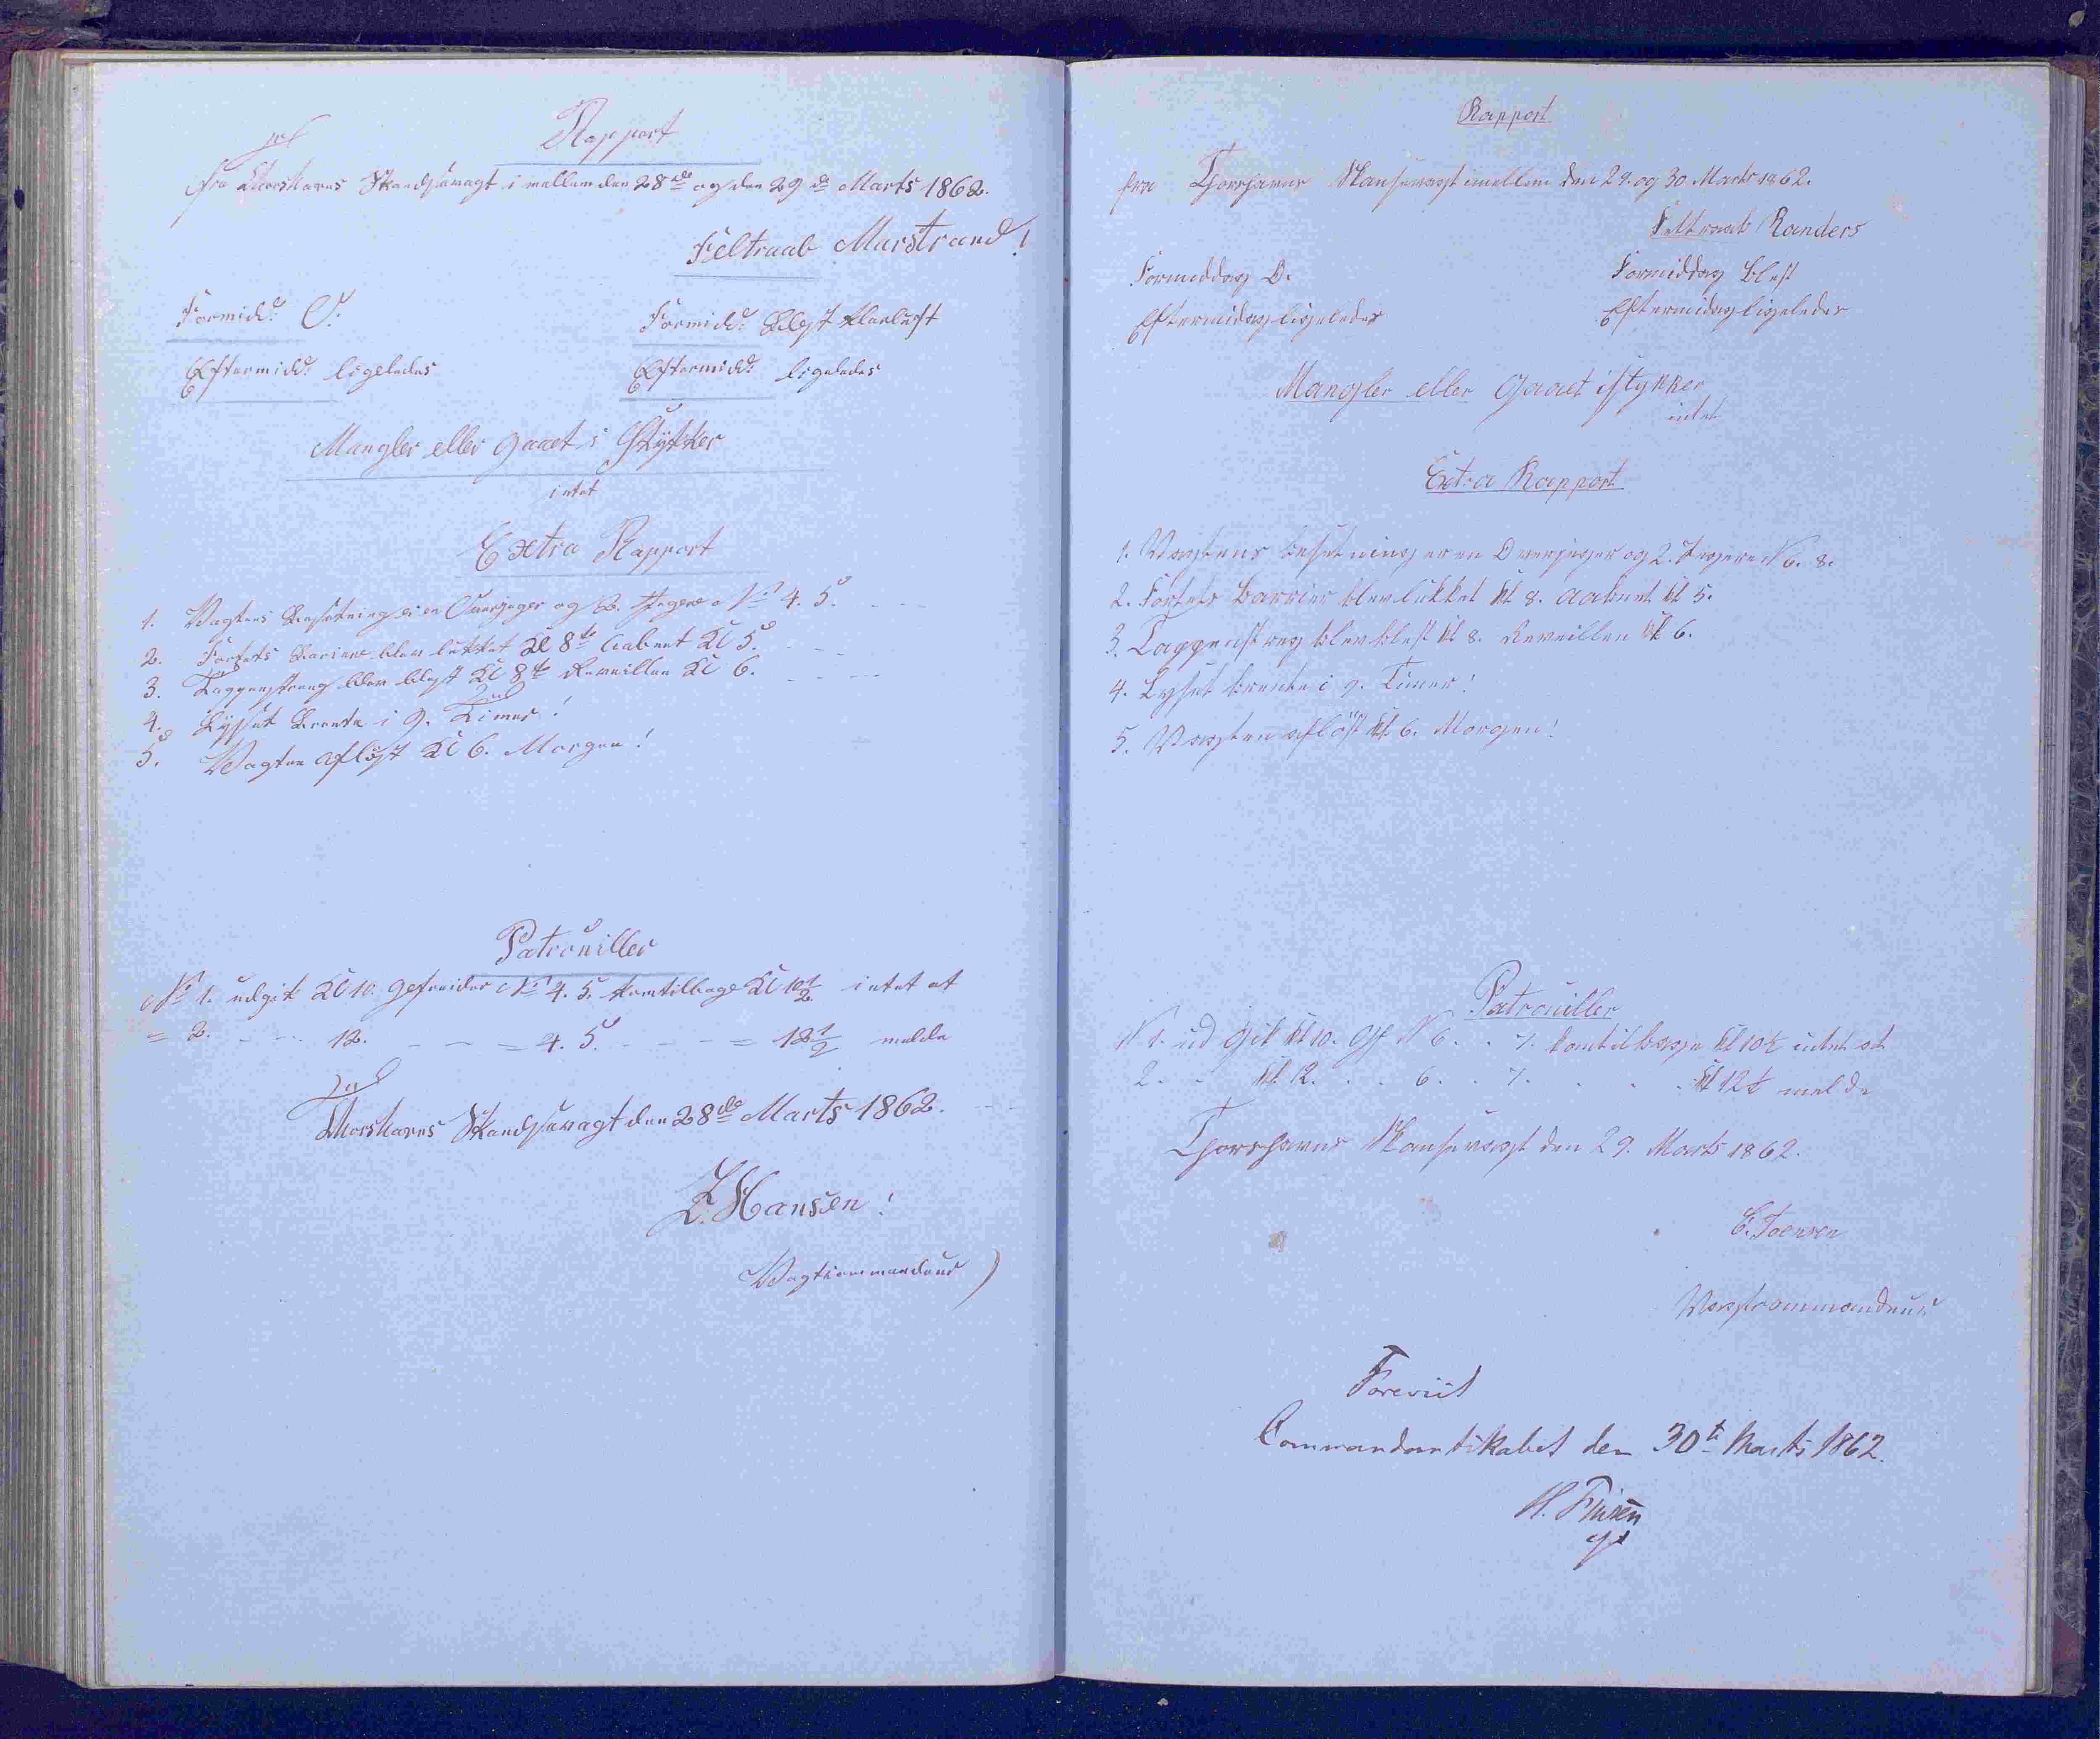 Rapport
fra Thorshavns Skandsevagt i mellem den 28de og den 29de Marts 1862.
Feltraab Marstrand!
Formidd: O:
Formidd: Blest klarluft
Eftermidd: ligeledes
Eftermidd: ligeledes
Mangler eller gaaet i Stykker
intet
Extra Rapport
1. Vagtens Besetning er en Overjæger og 2. Jægere No 4. 5.
2. Fortets Bariere blev lukket Kl 8te Aabnet Kl 5.
3. Tappenstreng blev blest Kl 8te Reveillen Kl 6.
4. Lysset Brente i 9. Timer!
5. Vagten Afløst Kl 6. Morgen!
Patrouiller
No 1. udgik Kl 10. Gefreider No 4. 5. komtilbage Kl 10 1/2 intet at
= 2. - - 12. - - = 4. 5. - - - = 12 1/2 melde
Thorshavns Skandsevagt den 28de Marts 1862.
Z. Hansen!
Vagtcommandeur
Rapport
fra Thorshavns Skansevagt imellem den 29. og 30 Marts 1862.
Feltraab Randers
Formiddag O.
Formiddag Blest
Eftermidag ligeledes
Eftermidag ligeledes
Mangler eller Gaaet istykker
intet
Extra Rapport
1. Vagtens besetning er en Overjeger og 2. Jegere N 6. 8.
2. Fortets Barrier blev lukket Kl 8. Aabnet Kl 5.
3. Tappenstreg blev blest Kl 8. Reveillen Kl 6.
4. Lyset brente i 9. Timer!
5. Vagten afløst Kl. 6. Morgen!
Patrouiller
N 1. ud Gik Kl 10. Gf N 6. . 7. komtilbage Kl 10 1/2 intet at
2. . Kl. 12. . . 6. . 7. . . . Kl 12 1/2 melde
Thorshavns Skansevagt den 29. Marts 1862.
Joensen
Vagtcommandeur
Foreviist
Commandantskabet den 30te Marts 1862.
H. Finsen